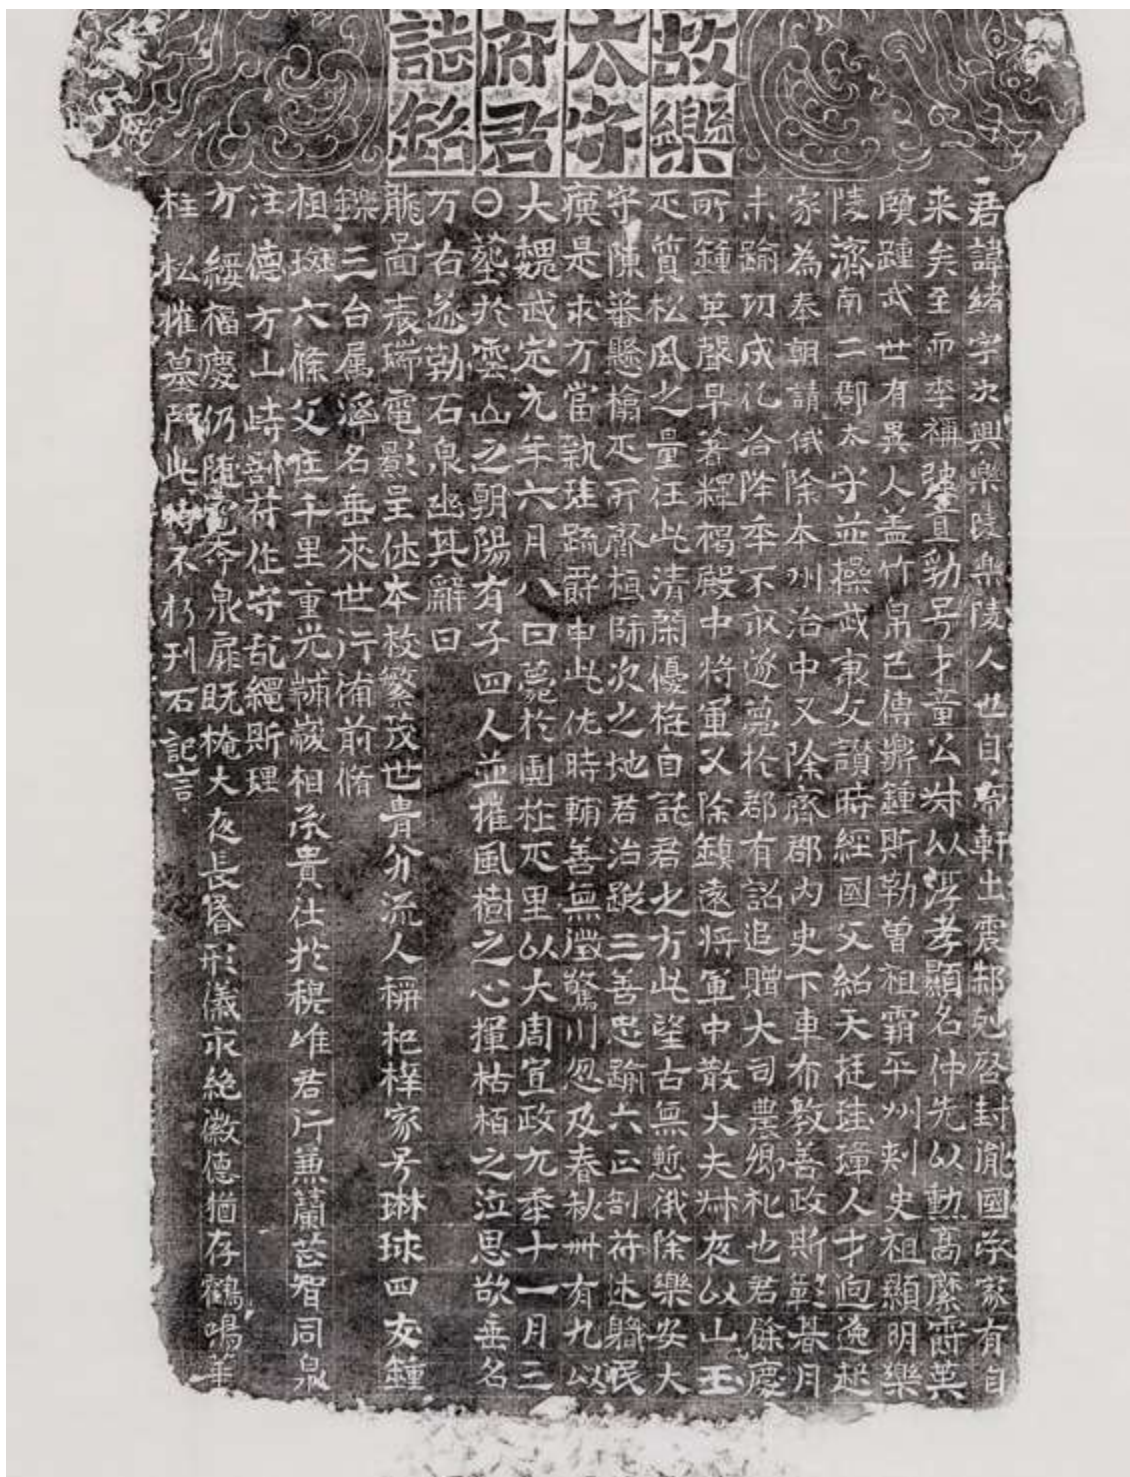 故樂
太守
府君
誌銘
君諱緒字次興樂陵樂陵人也自帝軒出震邾剋啓封胤國承家有自
来矣至而李禰肇直勁号才童公姝以淳孝顯名仲先以勲高縻霄英
賾踵武世有異人盖竹帛已傳鼎鍾斯勒曽祖霸平州刾史祖顯明樂
陵濟南二郡太守並操武康女讃時經國父紹天挺珪璋人才迥逸起
家為奉朝請俄除本州治中又除齊郡内史下車布教善政斯彰朞月
未踰功成化洽降季不永遂薨於郡有詔追贈大司農卿礼也君餘慶
所鍾英聲早著釋褐殿中将軍又除鎮遠将軍中散大夫姝夜以山玉
之質松風之量任此清閑優遊自託君之方此望古無慙俄除樂安太
守陳蕃懸榻之所齊桓師次之地君治踨三善忠踰六正剖符述軄民
瘼是求方當執珪疏爵申此佐時輔善無徵驚川忽及春秋卌有九以
大魏武定九年六月八日薨於圍柱之里以大周宣政九季十一月三
日塟於雲山之朝陽有子四人並摧風樹之心揮枯栢之泣思欲垂名
万古遂勒石泉幽其辭曰
龍啚表瑞電影呈休夲枝繁茂世胄分流人稱杞梓家号琳球四友鍾
鑠三台属濟名垂來世行侑前脩
祖斑六條父住千里重光黼黻相承貴仕於穆唯君行兼蘭茞智同泉
注德方山峙剖苻作守乱繩斯理
方綏福慶仍随窀岑泉扉既掩大夜長昏形儀永絶徽德猶存鶴鳴華
柱松摧墓門此特不朽刊石記言